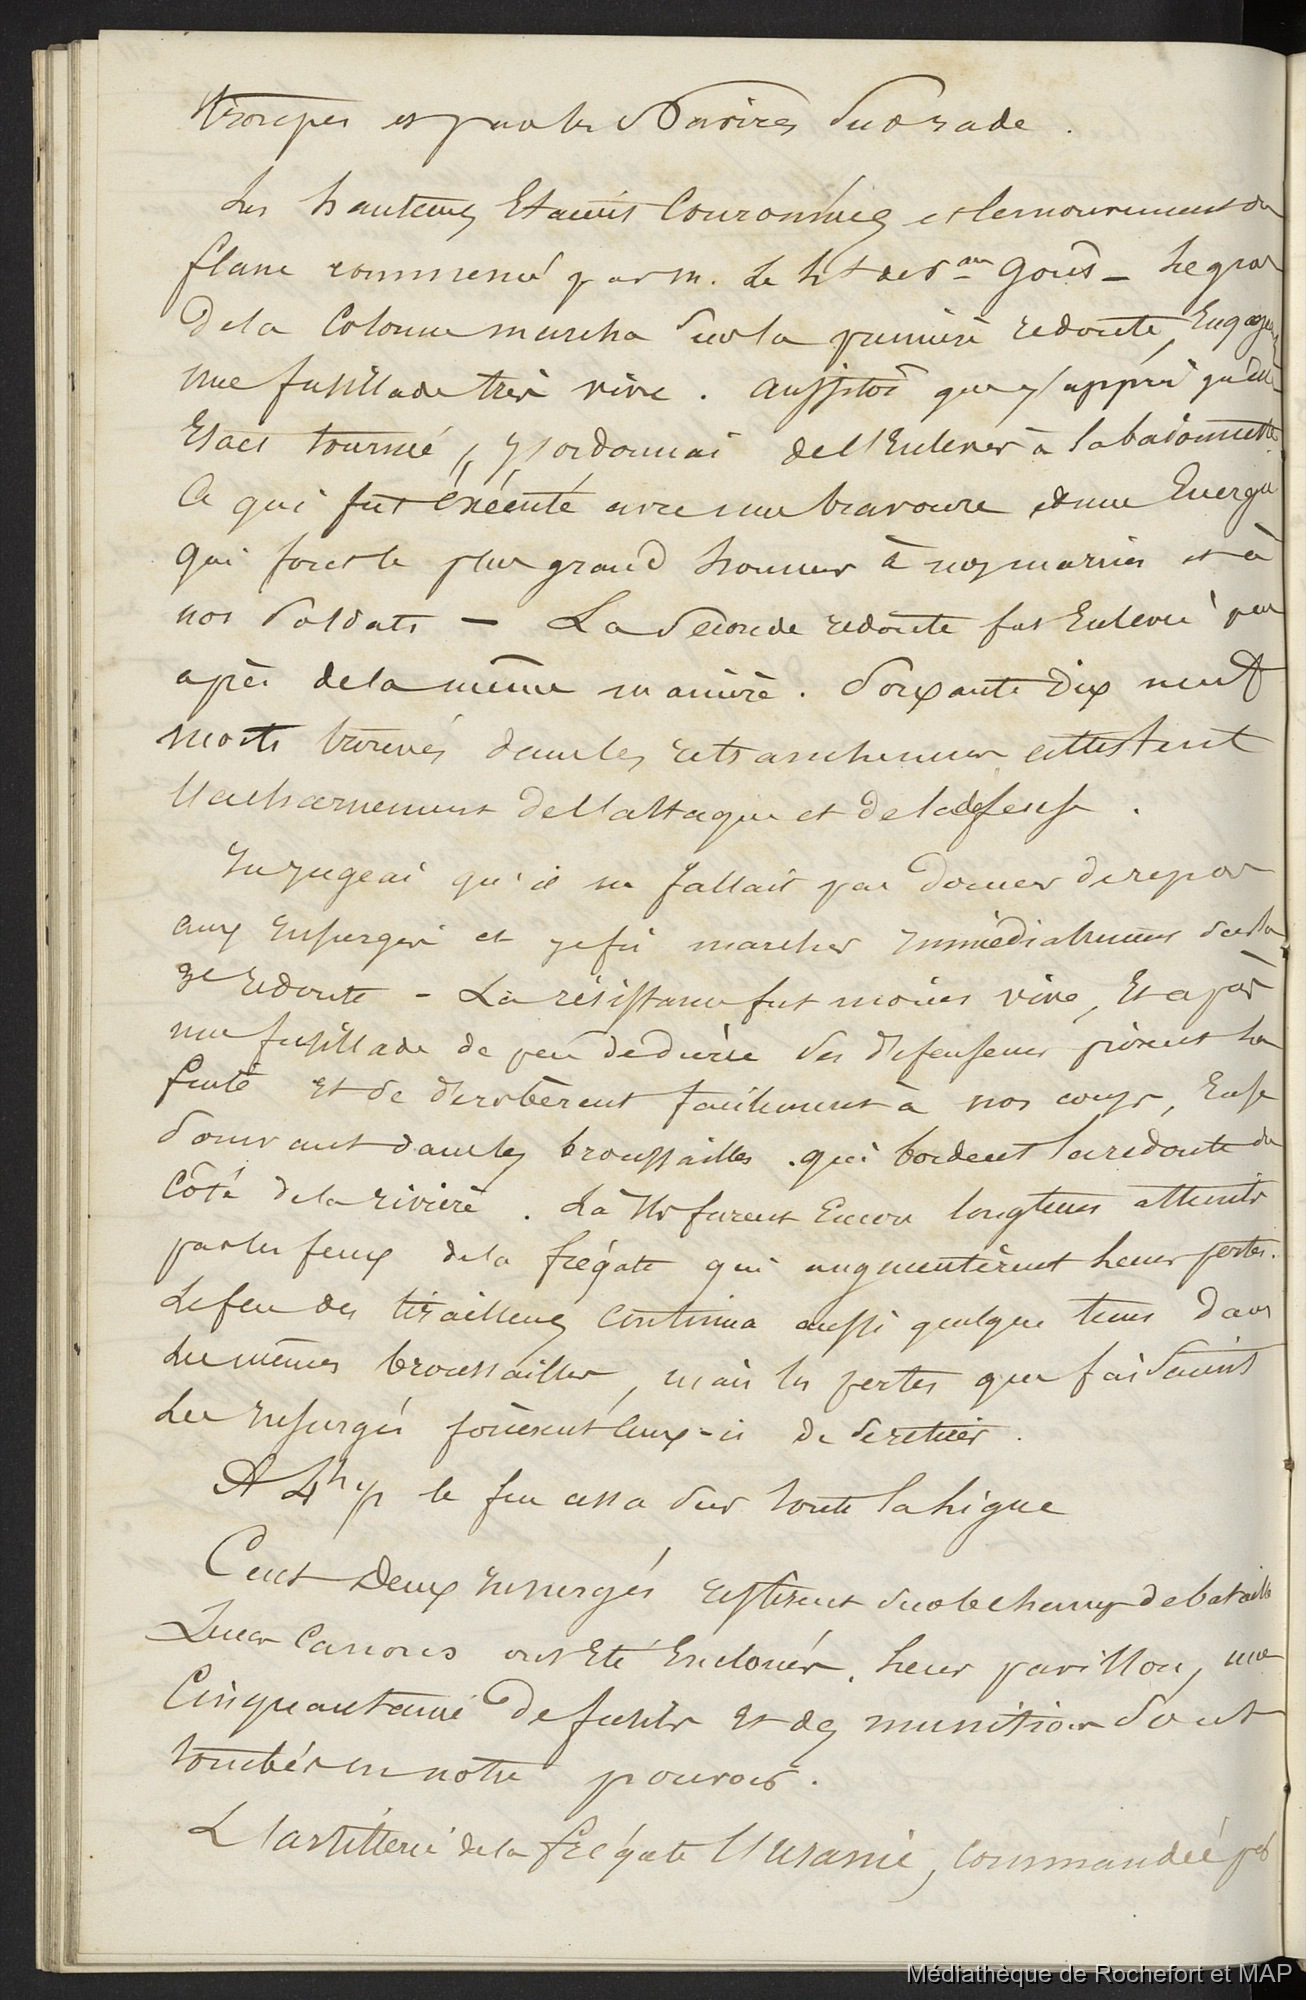 troupes et par les Navires sur rade.
Les hauteurs Etaient Couronnées et le mouvement de
flanc commencé par M. le Lt de Vau Gouës _ Le gros
De la Colonne marcha Sur la première redoute, Engagea
une fusillade très vive. Aussitôt que j'appris qu'elle
Etait tournée, j'ordonnai de l'Enlever à la baïonnette
Ce qui fut éxécuté avec une bravoure et une Energie
qui font le plus grand honneur à nos marins et à
nos Soldats – La Seconde redoute fut Enlevée peu
après de la même manière. Soixante Dix neuf
morts trouvés dans les retranchemens attestent
l'acharnement de l'attaque et de la défense.
Je jugeai qu'il ne fallait pas donner de repos
aux Insurgés et je fis marcher immédiatement sur la
3e redoute – La résistance fut moins vive, Et après
une fusillade de peu de durée les défenseurs prirent la
fuite et se dérobèrent facilement à nos coups, En se
Sauvant dans les broussailles qui bordent la redoute du
Côté de la rivière. Là Ils furent Encore longtems atteints
par les feux de la frégate qui augmentèrent leurs pertes.
Le feu des tirailleurs Continua aussi quelque tems Dans
les mêmes broussailles, mais les pertes que faisaient
les Insurgés forcèrent Ceux-ci de se retirer.
A 4h ½ le feu cessa Sur toute la Ligne
Cent Deux Insurgés restèrent sur le champ de bataille
Leurs Canons ont Eté Encloués. Leur pavillon, une
Cinquantaine De fusils Et des munitions Sont
tombés en notre pouvoir.
L'artillerie de la frégate l'Uranie, commandée par
Médiathèque de Rochefort et MAP